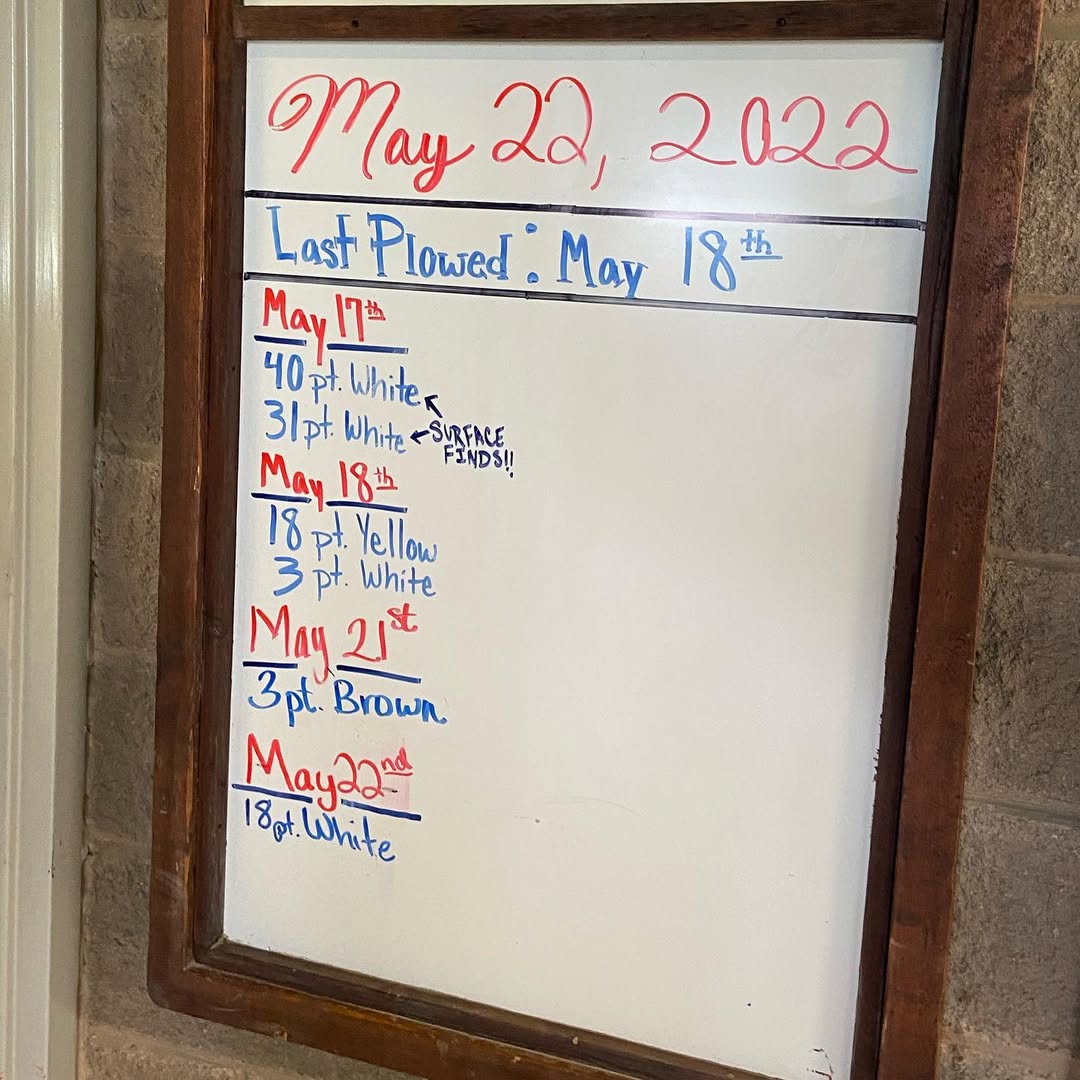 May 22, 2022
Last Plowed: May 18th
May 17th
40 pt. White
31 pt. White
SURFACE
FINDS!!
May 18th
18 pt. Yellow
3 pt. White
May 21st
3 pt. Brown
May 22nd
18 pt. White